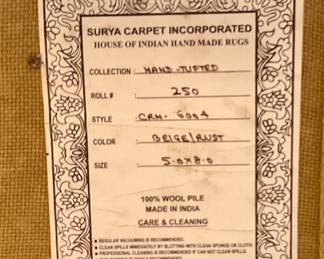 SURYA CARPET INCORPORATED
HOUSE OF INDIAN HAND MADE RUGS
COLLECTION : HAND-TUFTED
ROLL # : 250
STYLE : CRM- 6004
COLOR : BEIGE/RUST
SIZE : 5-0X8-0
100% WOOL PILE
MADE IN INDIA
CARE & CLEANING
■ REGULAR VACUUMING IS RECOMMENDED.
■ CLEAN SPILLS IMMEDIATELY BY BLOTTING WITH CLEAN SPONGE OR CLOTH.
■ PROFESSIONAL CLEANING IS RECOMMENDED IF CAN NOT CLEAN SPILLS.